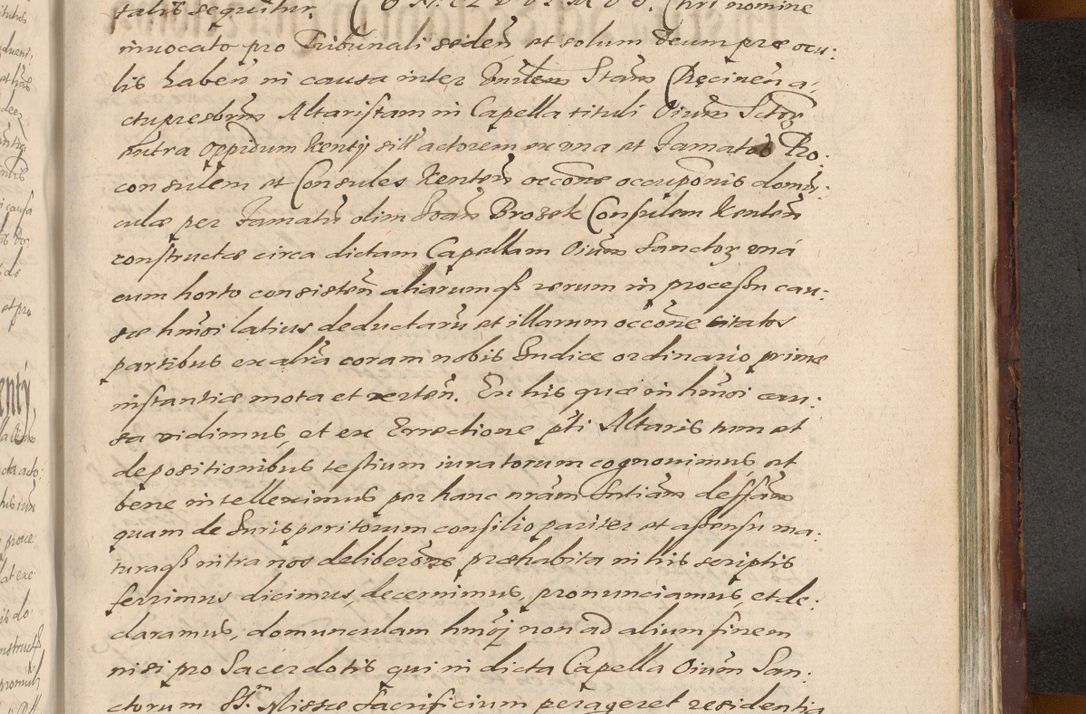 talis sequitur. CONCLUDIMUS. Chri nomine
invocato pro Tribunali seden̄ et solum Deum præ ocu:
lis haben̄ in causa inter Stan̄ Recinen̄ a:
ctu presbrm̄ Altaristam in Capella tituli Oium̄ Sctor
intra Oppidum Kenty sill actorem ex una et Famatos Pro:
consulem et Consules Kenten̄ occōne occuponis domū:
culæ per Famatū olim Joan̄ Brosek Consulem Kenten̄
constructæ circa dictam Capellam Oium̄ Sanctor unà
cum horto consisten̄ aliarumqß rerum in processu cau:
sæ hmōi latius deductarū et illarum occōne citatos
partibus ex altra coram nobis Judice ordinario primæ
instantiæ mota et verten̄. Ex his quæ in hmōi cau:
sa vidimus, et ex Errectione pti Altaris tum et
depositionibus testium iuratorum cognovimus et
bene intelleximus per hanc nrām Sntiam deffām
quam de Jurisperitorum consilio pariter et assensu ma:
turaqß intra nos deliberōne præhabita in his scriptis
ferrimus dicimus, decernimus, pronunciamus, et de:
claramus, domunculam hmōj non ad alium finem
nisi pro Sacerdotis qui in dicta Capella Oium̄ San:
ctorum St. Missæ Sacrificium perageret residentia